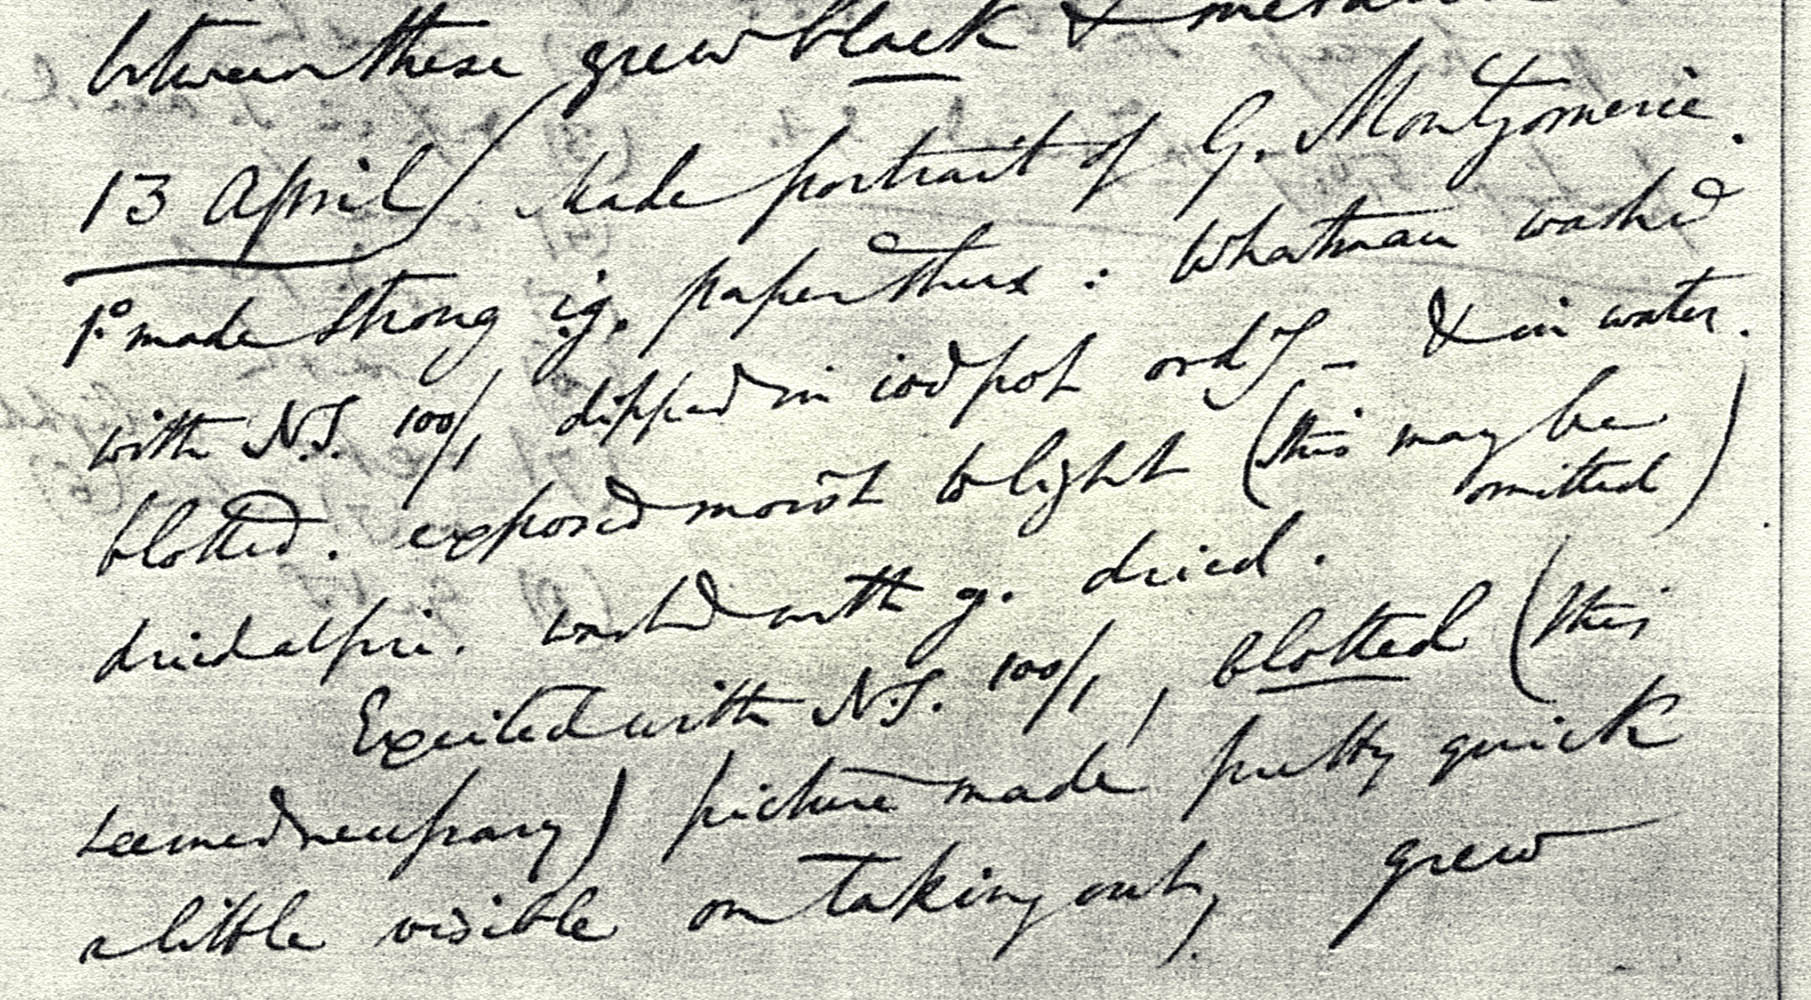 between these grew black &
13 April / Made portrait of G. Montgomerie.
1º made strong ig. paper thus : Whatman washd
with N.S. 100/1 dipped in iod pot ordy – & in water.
blotted. exposed moist to light (this may be
omitted)
dried at fire. washd with g. dried.
Excited with N.S. 100/1, blotted (this
seemed necessary) picture made pretty quick
a little visible on taking out, grew